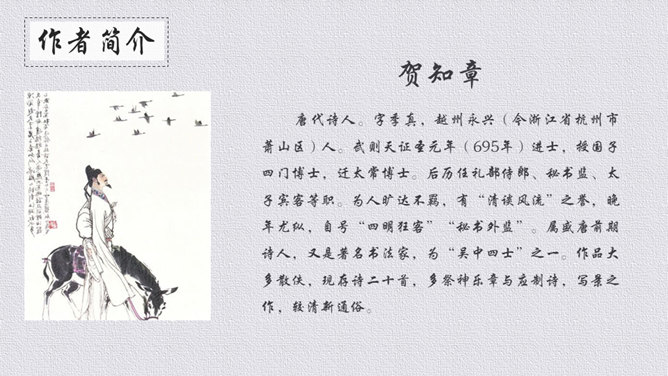 作者简介
贺知章
唐代诗人。字季真，越州永兴（今浙江省杭州市
萧山区）人。武则天证圣元年（695年）进士，授国子
四门博士，迁太常博士。后历任礼部侍郎、秘书监、太
子宾客等职。为人旷达不羁，有“清谈风流”之誉，晚
年尤纵，自号“四明狂客”“秘书外监”。属盛唐前期
诗人，又是著名书法家，为“吴中四士”之一。作品大
多散佚，现存诗二十首，多祭神乐章与应制诗，写景之
作，较清新通俗。